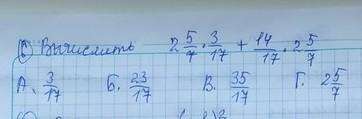 6) Вычислить 2 5/7 · 3/17 + 14/17 · 2 5/7
А. 3/17 Б. 23/17 В. 35/17 Г. 2 5/7